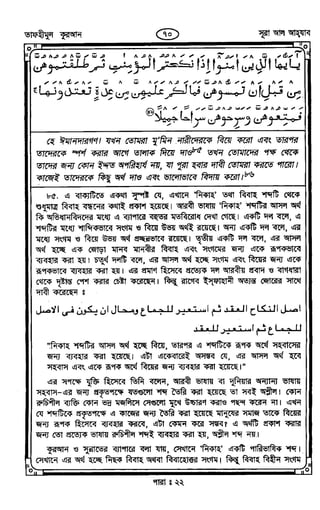 তাফহীমুল কুরআন
৭০
সূরা আল আহযাব
يٰٓاَيُّهَا الَّذِيْنَ اٰمَنُوْٓا اِذَا نَكَحْتُمُ الْمُؤْمِنٰتِ ثُمَّ طَلَّقْتُمُوْهُنَّ
مِنْ قَبْلِ اَنْ تَمَسُّوْهُنَّ فَمَا لَكُمْ عَلَيْهِنَّ مِنْ عِدَّةٍ تَعْتَدُّوْنَهَا ۚ
فَمَتِّعُوْهُنَّ وَسَرِّحُوْهُنَّ سَرَاحًا جَمِيْلًا
হে ঈমানদারগণ! যখন তোমরা মু'মিন নারীদেরকে বিয়ে করো এবং তারপর
তাদেরকে স্পর্শ করার আগে তালাক দিয়ে দাও৮৫ তখন তোমাদের পক্ষ থেকে
তাদের জন্য কোন ইদ্দত অপরিহার্য নয়, যা পুরা হবার দাবী তোমরা করতে পারো।
কাজেই তাদেরকে কিছু অর্থ দাও এবং ভালোভাবে বিদায় করো।৮৬
৮৫. এ বাক্যটিতে একথা সুস্পষ্ট যে, এখানে 'নিকাহ' তথা বিবাহ শব্দটি থেকে
শুধুমাত্র বিবাহ বন্ধনের কথাই প্রকাশ হয়েছে। আরবী ভাষায় 'নিকাহ' শব্দটির আসল অর্থ
কি অভিধানবিদদের মধ্যে এ ব্যাপারে বহুতর মতবিরোধ দেখা গেছে। একটি দল বলে, এ
শব্দটির মধ্যে শাব্দিকভাবে সংগম ও বিয়ে উভয় অর্থই রয়েছে। অন্য একটি দল বলে, এর
মধ্যে সংগম ও বিয়ে উভয় অর্থ প্রচ্ছন্নভাবে রয়েছে। তৃতীয় একটি দল বলে, এর আসল
অর্থ হচ্ছে এক জোড়া মানব মানবীর বিবাহ এবং সংগমের জন্য একে রূপকভাবে
ব্যবহার করা হয়। চতুর্থ দলটি বলে, এর আসল অর্থ হচ্ছে সংগম এবং বিয়ের জন্য একে
রূপকভাবে ব্যবহার করা হয়। এর প্রমাণ হিসেবে প্রত্যেক দল আরবীয় প্রবাদ ও বাগধারা
থেকে দৃষ্টান্ত পেশ করার চেষ্টা করেছেন। কিন্তু রাগেব ইসফাহানী অত্যন্ত জোরের সাথে
দাবী করেছেন ঃ
اصل النكاح العقد ثم استعير للجماع ومحال ان يكون فى الاصل
للجماع ثم استعير للعقد
"নিকাহ শব্দটির আসল অর্থ হচ্ছে বিয়ে, তারপর এ শব্দটিকে রূপক অর্থে সহবাসের
জন্য ব্যবহার করা হয়েছে। এটা একেবারেই অসম্ভব যে, এর আসল অর্থ হবে
সহবাস এবং একে রূপক অর্থে বিয়ের জন্য ব্যবহার করা হয়েছে।"
এর সপক্ষে যুক্তি হিসেবে তিনি বলেন, আরবী ভাষায় বা দুনিয়ার অন্যান্য ভাষায়
সহবাস-এর জন্য প্রকৃতপক্ষে যতগুলো শব্দ তৈরি করা হয়েছে তা সবই অশ্লীল। কোন
রুচিশীল ব্যক্তি কোন ভদ্র মজলিসে সেগুলো মুখে উচ্চারণ করাও পছন্দ করেন না। এখন
যে শব্দটিকে প্রকৃতপক্ষে এ কাজের জন্য তৈরি করা হয়েছে মানুষের সমাজ তাকে বিয়ের
জন্য রূপক হিসেবে ব্যবহার করবে, এটা কেমন করে সম্ভব? এ অর্থটি প্রকাশ করার
জন্য তো প্রত্যেক ভাষায় রুচিশীল শব্দই ব্যবহার করা হয়, অশ্লীল শব্দ নয়।
কুরআন ও সুন্নাতের ব্যাপারে বলা যায়, সেখানে 'নিকাহ' একটি পারিভাষিক শব্দ।
সেখানে এর অর্থ হচ্ছে নিছক বিবাহ অথবা বিবাহোত্তর সংগম। কিন্তু বিবাহ বিহীন সংগম
পারা ঃ ২২